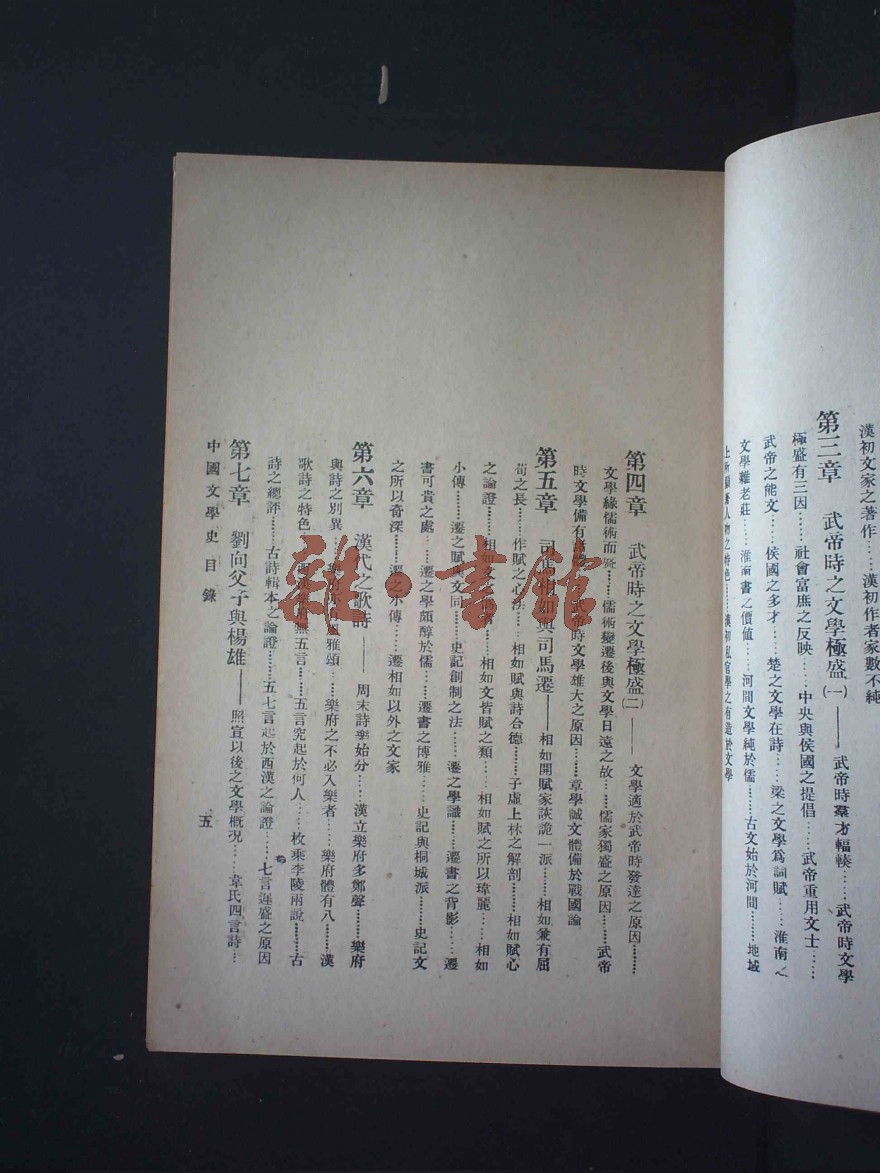 漢初文家之著作……漢初作者家數不純
第三章　武帝時之文學極盛(一)——武帝時羣才輻輳……武帝時文學
極盛有三因……社會富庶之反映……中央與侯國之提倡……武帝重用文士……
武帝之能文……侯國之多才……楚之文學在詩……梁之文學爲詞賦……淮南之
文學雜老莊……淮南書之價値……河間文學純於儒……古文始於河間……地域
上所顯著人物之特色……漢初私官學之有造於文學
第四章　武帝時之文學極盛(二)——文學適於武帝時發達之原因……
文學緣儒術而　……儒術變遷後與文學日遠之故……儒家獨盛之原因……武帝
時文學備有　……武帝時文學雄大之原因……章學誠文體備於戰國論
第五章　司馬相如與司馬遷——相如開賦家詼詭一派……相如兼有屈
荀之長……作賦之心法……相如賦與詩合德……子虛上林之解剖……相如賦心
之論證……相如文　……相如文皆賦之類……相如賦之所以瑋麗……相如
小傳……遷之賦與文同……史記創制之法……遷之學識……遷書之背影……遷
書可貴之處……遷之學頗醇於儒……遷書之博雅……史記與桐城派……史記文
之所以奇深……遷之小傳……遷相如以外之文家
第六章　漢代之歌詩——周末詩樂始分……漢立樂府多鄭聲……樂府
與詩之別異……樂府亦有風雅頌……樂府之不必入樂者……樂府體有八……漢
歌詩之特色……西漢樂府無五言……五言究起於何人……枚乘李陵兩說……古
詩之總評……古詩輯本之論證……五七言起於西漢之論證……七言遲盛之原因
第七章　劉向父子與楊雄——照宣以後之文學概況……韋氏四言詩…
中國文學史目錄
五
雜·書館